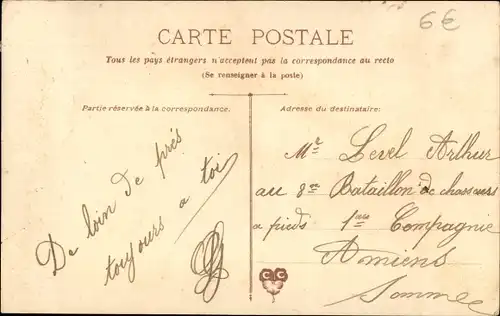 6€
CARTE POSTALE
Tous les pays étrangers n'acceptent pas la correspondance au recto
(Se renseigner à la poste)
Partie réservée à la correspondance.
De loin de près
toujours a toi
Adresse du destinataire:
Mr Level Arthur
au 8me Bataillon de chasseurs
a pieds 1ere Compagnie
Amiens
Somme
C C